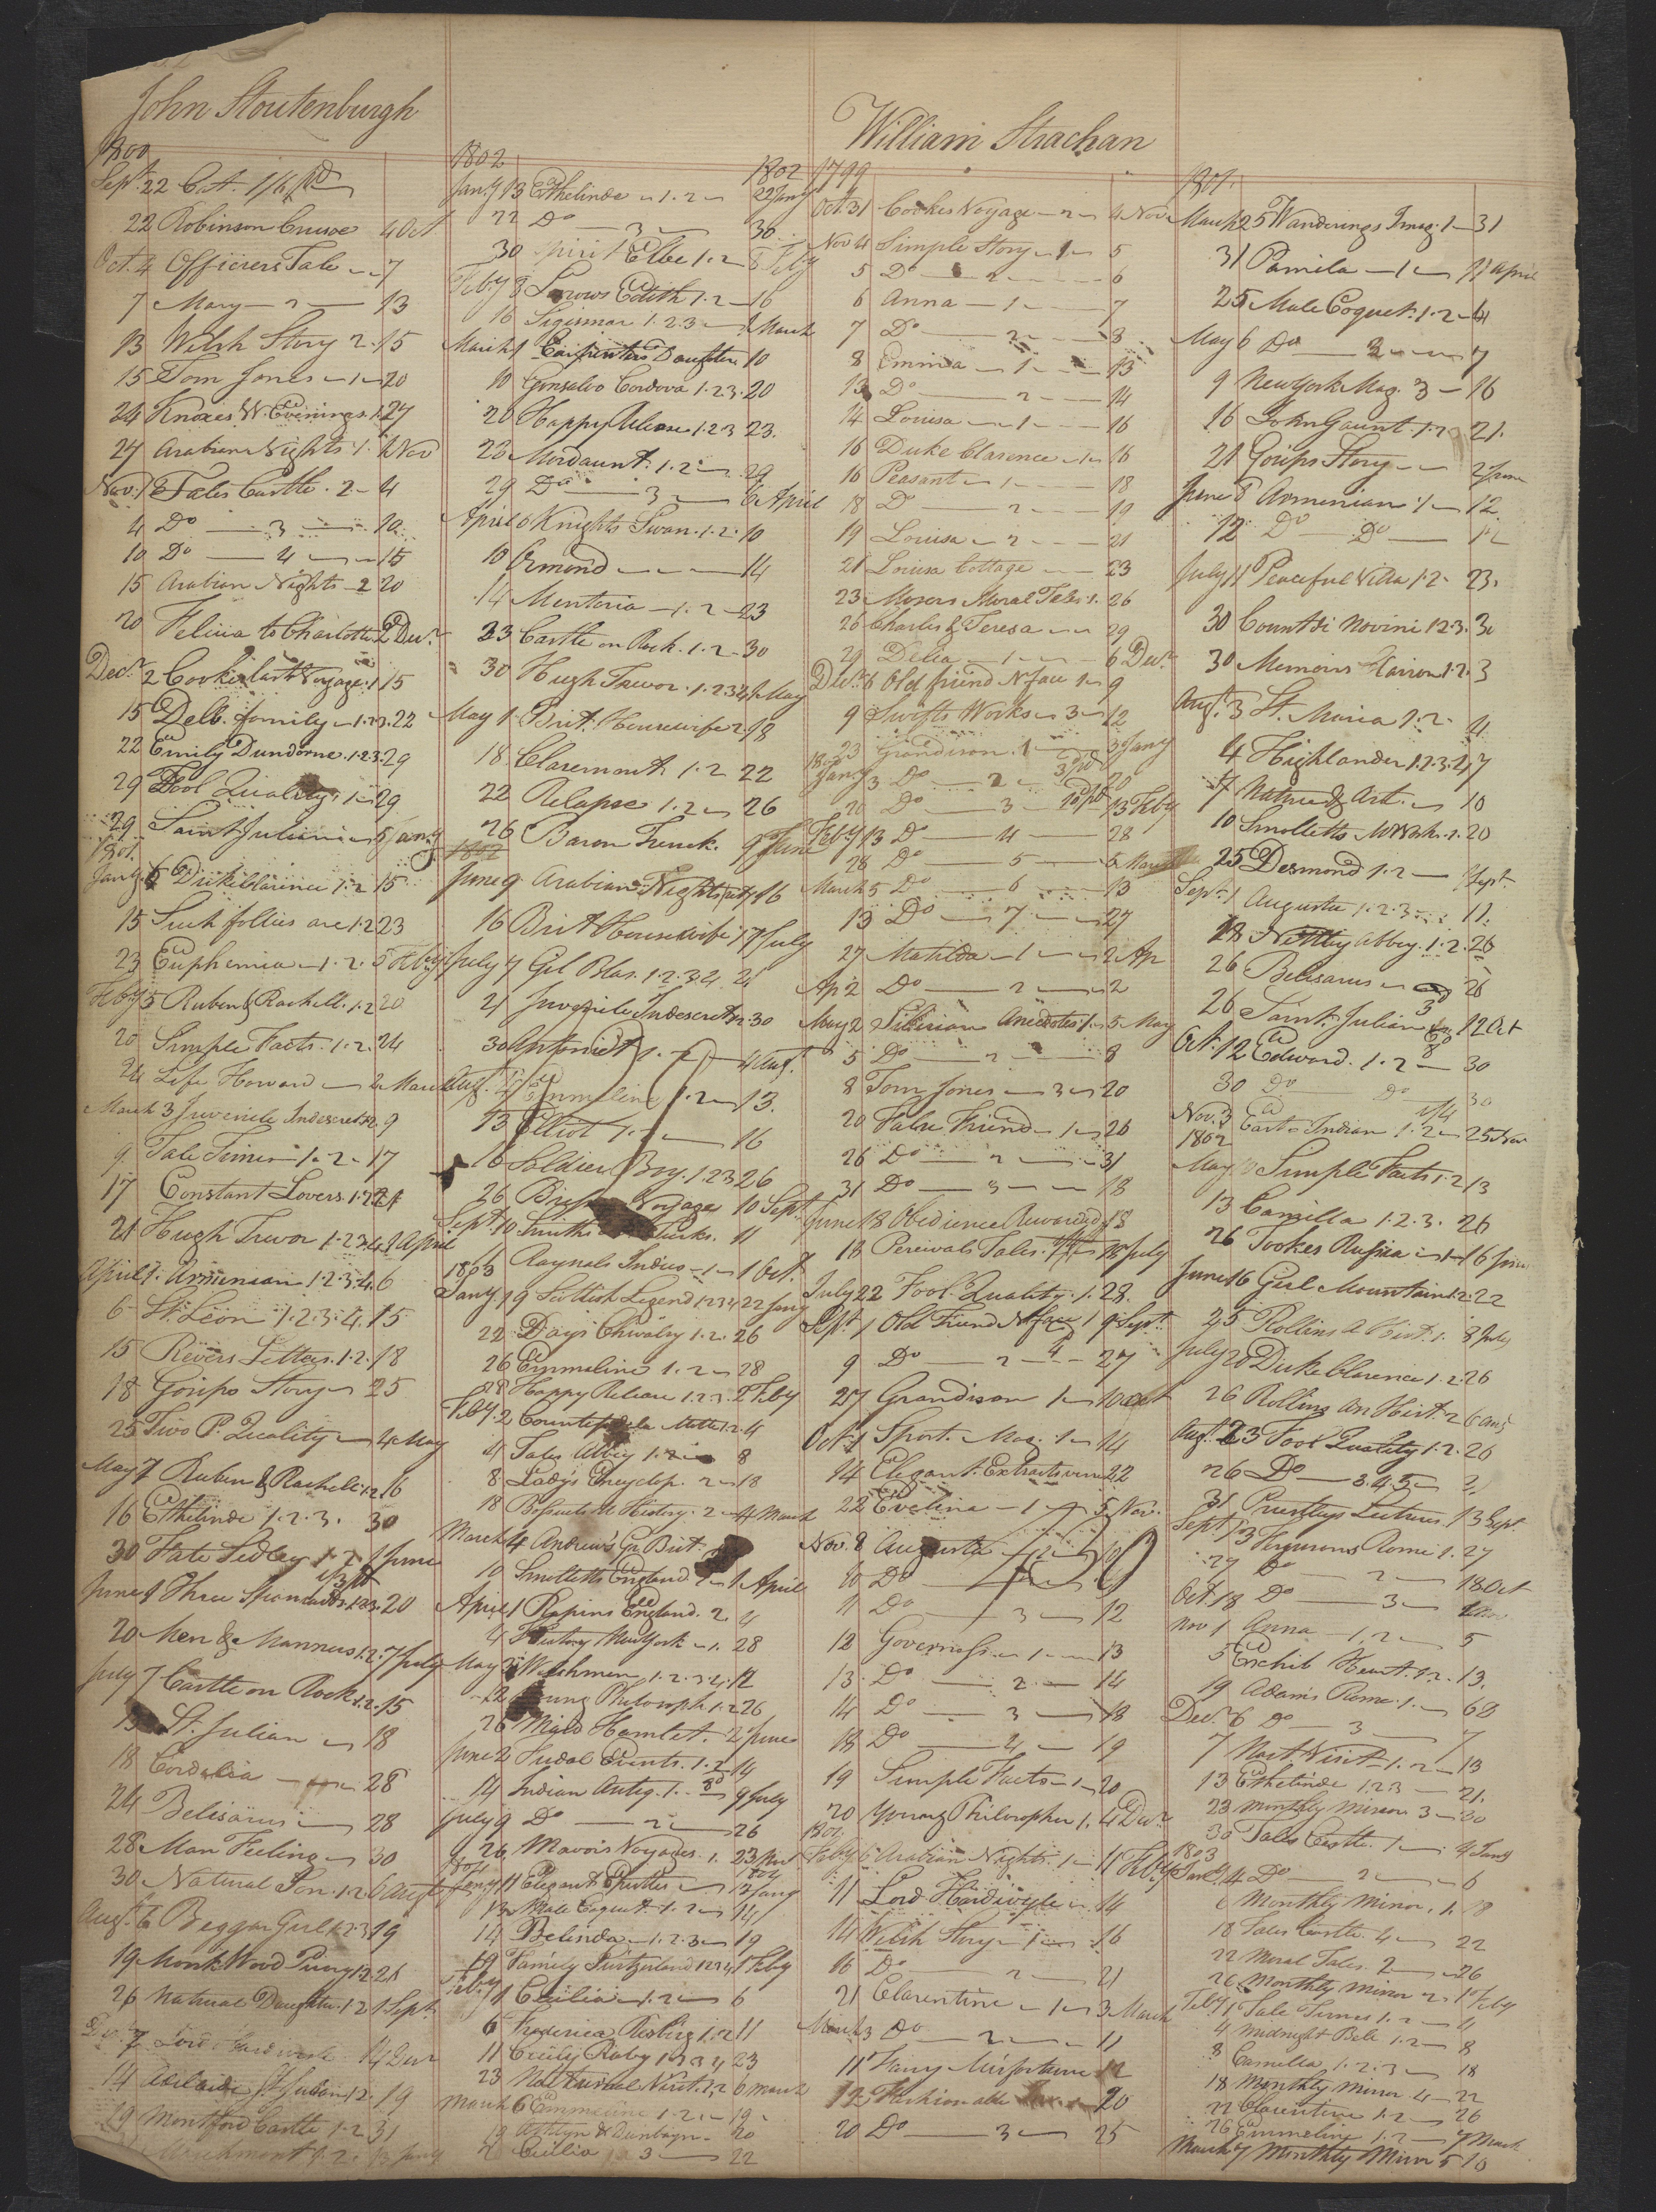 John Stoutenburgh
1800
Sept. 22 Cat. 1/6 pd
22 Robinson Crusoe 4 Oct
Oct. 4 Officers Tale 7
7 Mary 2 13
13 Welsh Story 2. 15
15 Tom Jones 1 20
24 Knoxes W. Evenings. 1. 27
27 Arabian Nights 1. 1 Nov
Nov. 1 Tales Castle. 2 4
4 Do 3 10
10 Do 4 15
15 Arabian Nights 2 20
20 Felicia to Charlotte 2 Decr.
Decr. 2 Cookes last Voyage. 1 15
15 Delb. family 1.2.3. 22
22 Emily Dundorne. 1.2.3. 29
29 Fool Quality. 1 29
29 Saint Julian 5 Jany
1801.
Jany. 5 Duke Clarence 1.2 15
15 Such follies are 1.2 23
23 Euphemia 1.2. 5 Feby
Feby 5 Ruben & Rachell. 1.2 20
20 Simple Facts. 1.2. 24
24 Life Howard 2 March
March 3 Juvenile Indescret. 1.2. 9
9 Tale Times 1.2. 17
17 Constant Lovers. 1.2 21
21 Hugh Trevor 1.2.3.4. 1 April
April 1. Armenian 1.2.3.4. 6
6 St. Leon 1.2.3.4. 15
15 Rivers Letters. 1.2. 18
18 Gosips Story 25
25 Two P. Quality 4 May
May 7 Ruben & Rachell. 1.2. 16
16 Ethelinde 1.2.3. 30
30 Fate Sedley 1.2 1 June
June 1 Three Spaniards. 1.2.3. 20
20 Men & Manners 1.2. 7 July
July 7 Castle on Rock 1.2. 15
15 St. Julian 18
18 Cordelia 28
24 Belisarius 28
28 Man Feeling 30
30 Natural Son. 1.2 6 Augt
Augt. 6 Beggar Girl 1.2.3 19
19 Monk Wood Priory 1.2. 26
26 Natural Daughter. 1.2 1 Sept.
7 Lord Hardiwicle 14 Decr
14 Adelaide St Julian 1.2. 19
19 Montford Castle 1.2 31
1.2. 13 Jany
1802 1802
Jany. 13 Ethelinde 1.2 22 Jany
22 Do 3 30
30 Spirit Elbe 1.2 8 Feby
Feby 8 Sorrows Edith 1.2 16
16 Sigismar 1.2.3 1 March
March 1 Carpenters Daughter 10
10 Gonsalvo Cordova 1.2.3. 20
20 Happy Release 1.2.3 23.
23 Mordaunt. 1.2 29
29 Do 3 6 April
April 6 Knights Swan. 1.2. 10
10 Ormond 14
14 Mentoria 1.2 23
23 Castle on Rock. 1.2. 30
30 Hugh Trevor. 1.2.3.4 1 May
May 1. Brit. Housewife 2. 18
18. Claremont 1.2 22
22 Relapse 1.2 26
26 Baron Trenck. 9 June
1802
June 9 Arabian Nights 16
16 Brit Housewife 1 7 July
July 7 Gil Blas. 1.2.3.4. 21
21 Juvenile Indescret. 1.2. 30
30 Antoniet 1.2 4 Aug.
Augt. 4 Emmeline 1.2 13.
13 Elliot 1.2 16
16 Soldier Boy. 1.2.3 26
26 Voyage 10 Sept.
Sept. 10 Smiths Turks. 11
11 Raynals Indies 1 1 Oct.
1803
Jany. 19 Scottish Legend 1.2.3.4 22 Jany
22 Days Chivalry 1.2. 26
26 Emmeline 1.2 28
28 Happy Release 1.2.3. 2 Feby
Feby. 2 Countess de la Motte 1.2. 4
4 Tales Abbey 1.2 8
8 Ladys Encyclop. 2 18
18 Bossuets U. History. 2 4 March
March 4 Andrew's Gr. Brit.
10 Smolletts England. 1 April
April 1 Rapins England. 2 4
4 History New York 1. 28
May 3 Welchmen 1.2.3.4. 12
12 Young Philosoph 1.2 26
26 Maid Hamlet. 2 June
June 2 Feudal Events. 1.2 14
14 Indian Antiq. 1. 9 July
July 9 Do 2 26
26 Mavors Voyages. 1. 23 Nov
1804 1804
Jany 11 Elegant Epistles 13 Jany
13 Male Coquet. 1.2 14
14 Belinda 1.2.3 19
19 Family Switzerland 1.2.3.4 1 Feby
Feby 1 Cecilia 1.2 6
6 Frederica Risberg 1.2 11
11 Cecily Raby 1.2.3.4 23
23 Nocturnal Visit. 1.2 6 March
March 6 Emmeline 1.2. 19.
19 Ashton & Danbayn. 20
20 Cecilia 3 22
William Strachan
1799
Oct. 31 Cookes Voyage 2 4 Nov.
Nov. 4 Simple Story 1 5
5 Do 2 6
6 Anna 1 7
7 Do 2 8
8 Emma 1 13
13 Do 2 14
14 Louisa 1 16
16 Duke Clarence 1 16
16 Peasant 1 18
18 Do 2 19
19 Louisa 2 21
21 Louisa Cottage 23
23 Mosers Moral Tales 1. 26
26 Charles & Teresa 29
29 Delia 1 6 Decr.
Decr. 6 Old friend N. face 1 9
9 Swifts Works 3 12
23 Grandison. 1 3 Jany
1800
Jany. 3 Do 2 20
20 Do 3 13 Feby
Feby 13 Do 4 28
28 Do 5 5 March
March 5 Do 6 13
13 Do 7 27
27 Matilda 1 2 Ap
Ap 2 Do 2 2
May 2 Siberian Anecdotes 1. 5 May
5 Do 2 8
8 Tom Jones 3 20
20 False Friend 1 26
26 Do 2 31
31 Do 3 18
June 18 Obedience Rewarded 18
18 Percivals Tales. 18 July
July 22 Fool Quality. 1. 28.
Sept. 1 Old Friend N. face 1 9 Sept.
9 Do 2 27
27 Grandison 1 10 Oct
Oct. 1 Sport. Mag. 1 14
14 Elegant Extracts verse 22
22 Evelina 1 5 Nov.
Nov. 8 Augusta 1 10
10 Do 2
11 Do 3 12
12 Governess 1 13
13. Do 2 14
14 Do 3 18
18 Do 4 19
19 Simple Facts 1 20
20 Young Philosopher 1. 4 Decr.
1801
Feby 6 Arabian Nights. 1 11 Feby
11 Lord Hardiwicle 14
14 Welsh Story 1 16
16 Do 2 21
21 Clarentine 1 3 March
March 3 Do 2 11
11 Fanny Misfortune 12
12 Fashionable 20
20 Do 3 25
1801.
March 25 Wanderings Imag. 1 31
31 Pamela 1 11 April
25 Male Coquet. 1.2 4
May 6 Do 2 7
9 New York Mag. 3 16
16 John Gaunt. 1.2 21.
21 Gosips Story 2 June
June 8 Armenian 1 12
12 Do Do 12
July 11 Peaceful Villa 1.2. 23.
30 Count di Novini 1.2.3. 30
30 Memoirs 1.2. 3
Augt. 3 St. Maria 1.2. 4
4 Highlander 1.2.3.4 7
7 Nature & Art. 10
10 Smolletts Works. 1. 20
25 Desmond 1.2 1 Sept.
Sept. 1 Augusta 1.2.3 11.
18 Netley Abbey. 1.2. 26
26 Belisarus 26
26 Saint Julian 12 Oct
Oct. 12 Edward. 1.2 30
30 Do Do 30
Nov. 3 East Indian 1.2 25 Nov
1802
May 10 Simple Facts 1.2 13
13 Camilla 1.2.3. 26
26 Tookes Rusia 1 16 June
June 16 Girl Mountain 1.2. 22
25 Rollins A Hist. 1. 8 July
July 20 Duke Clarence 1.2. 26
26 Rollins An Hist. 2 6 Aug
Augt. 23 Fool Quality 1.2. 26
26 Do 3.4.5 31
31 Priestlys Lectures. 13 Sept.
Sept 13 Fergusons Rome 1. 27
27 Do 2 18 Oct
Oct. 18 Do 3 1 Nov
Nov 1 Anna 1.2 5
5 Exhib Heart. 1.2. 13.
19 Adams Rome 1. 6 D
Decr. 6 Do 3 7
7 Noct. Visit 1.2 13
13 Ethelinde 1.2.3 21.
23 Monthly Mirror. 3 30
30 Tales Castle. 1 4 Jany
1803
Jany. 4 Do 2 6
6 Monthly Mirror. 1. 18
18 Tales Castle. 4 22
22 Moral Tales. 2 26
26 Monthly Mirror 2 1 Feby
Feby 1 Tale Times 1.2 4
4 Midnight Bell 1.2 8
8 Camilla 1.2.3 18
18 Monthly Mirror 4 22
22 Clarentine 1.2 26
26 Emmeline 1.2 7 March
March 7 Monthly Mirror 5 10